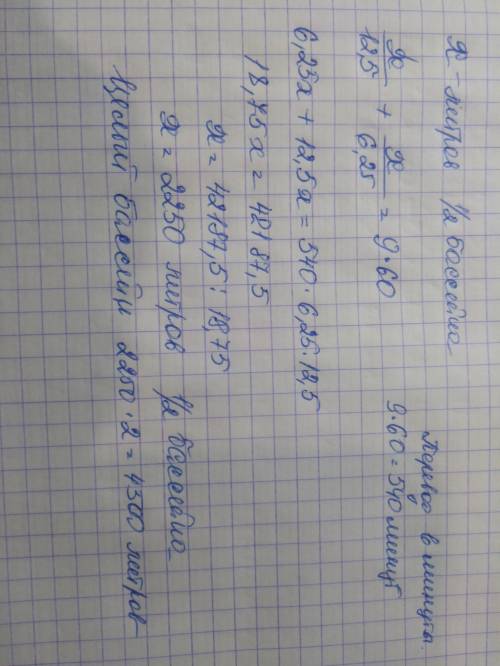 х - литров 1/2 бассейна
х/12,5 + х/6,25 = 9·60
Перевод в минуты.
9·60=540 минут
6,25х + 12,5х = 540·6,25·12,5
18,75х = 42187,5
х = 42187,5 : 18,75
х = 2250 литров 1/2 бассейна
Целый бассейн 2250·2 = 4500 литров